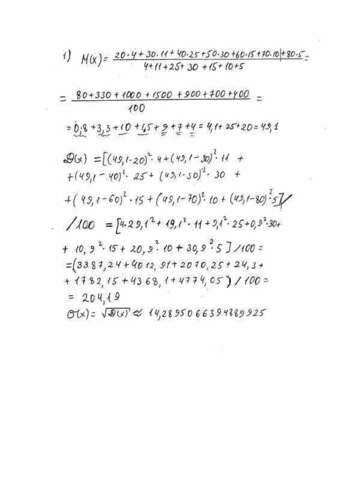 1) M(x) = 20·4+30·11+40·25+50·30+60·15+70·10+80·5 =
4+11+25+30+15+10+5
= 80+330+1000+1500+900+700+400 =
100
= 0,8+3,3+10+15+9+7+4 = 4,1+25+20 = 49,1
D(x) = [(49,1-20)²·4+(49,1-30)²·11 +
+(49,1-40)²·25+(49,1-50)²·30 +
+(49,1-60)²·15+(49,1-70)²·10+(49,1-80)²·5]/
/100 = [4·29,1²+19,1²·11+9,1²·25+0,9²·30+
+10,9²·15+20,9²·10+30,9²·5]/100 =
=(3387,24+4012,91+2070,25+24,3+
+1782,15+4368,1+4774,05)/100 =
= 204,19
σ(x) = √D(x) ≈ 14,2895066394889925